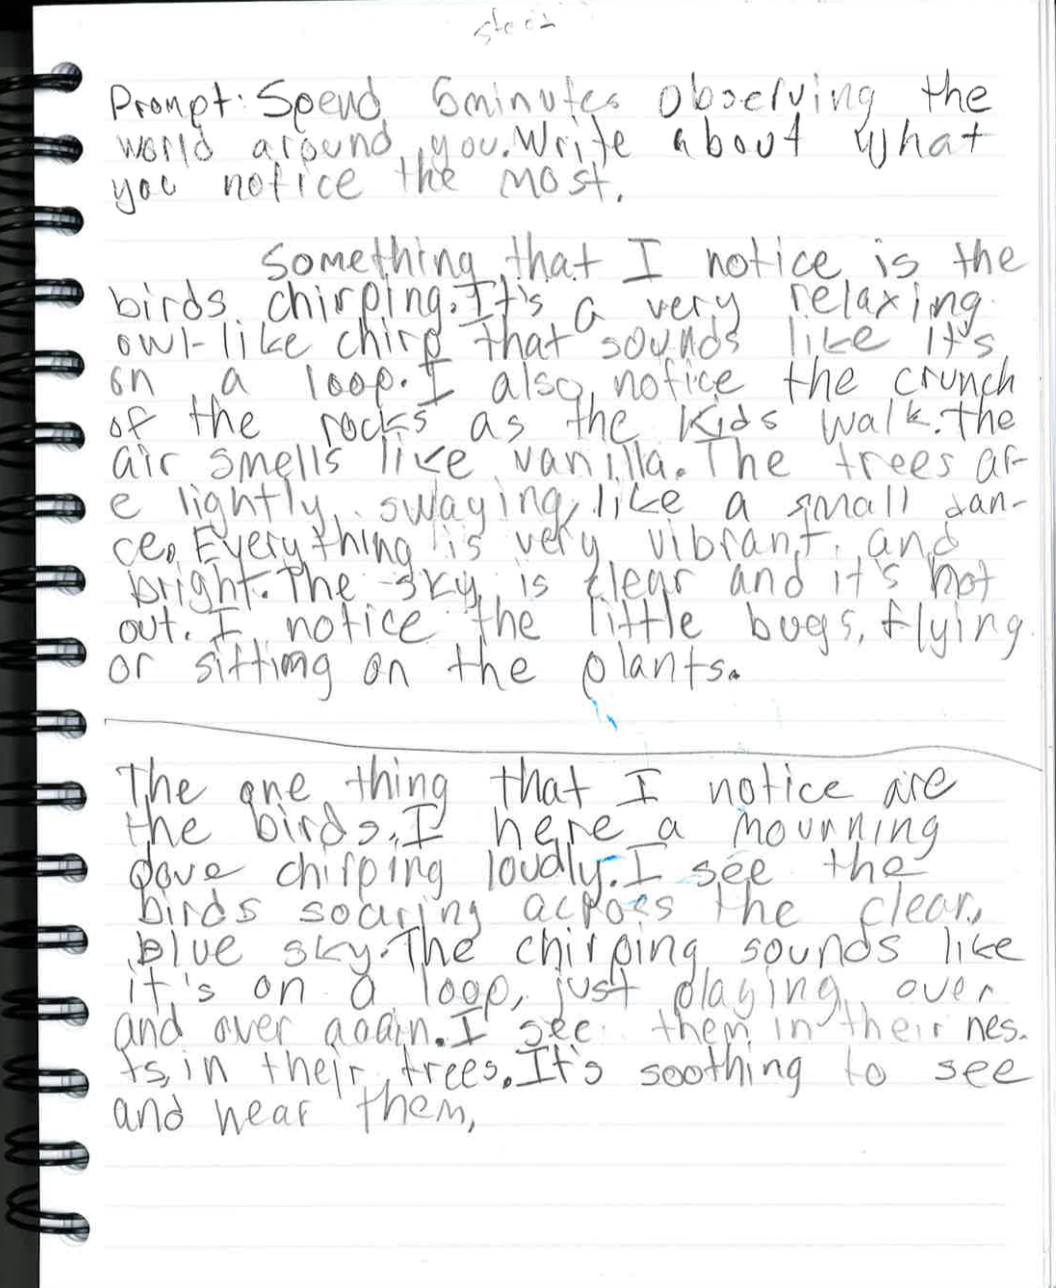 Prompt: Spend 6 minutes observing the
world around you. Write about what
you notice the most.
Something that I notice is the
birds chirping. It's a very relaxing
owl-like chirp that sounds like it's
on a loop. I also notice the crunch
of the rocks as the kids walk. the
air smells like vanilla. The trees ar-
e lightly swaying, like a small dan-
ce. Everything is very vibrant and
bright. The sky is clear and it's hot
out. I notice the little bugs, flying
or sitting on the plants.
The one thing that I notice are
the birds. I here a mourning
dove chirping loudly. I see the
birds soaring across the clear,
blue sky. The chirping sounds like
it's on a loop, just playing over
and over again. I see them in their nes-
ts, in their trees. It's soothing to see
and hear them.